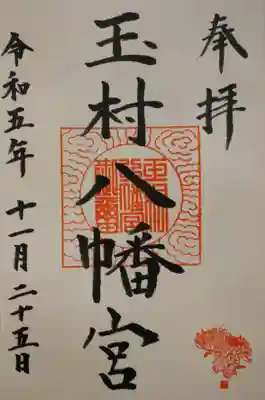 奉拝
玉村八幡宮
令和五年 十一月二十五日